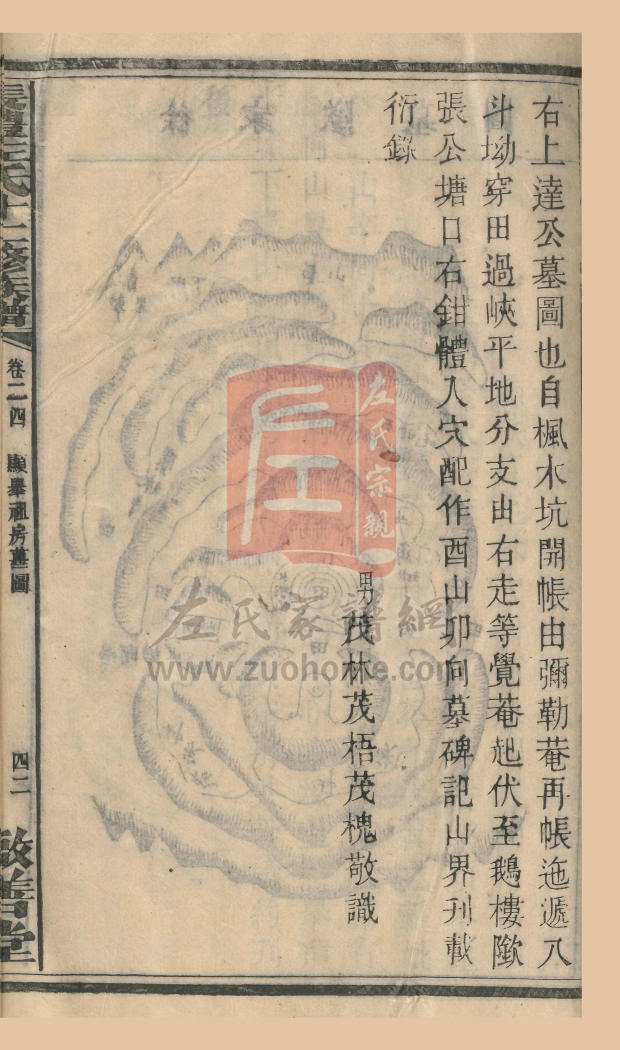 右上達公墓圖也自楓木坑開帳由彌勒菴再帳迤遞入
斗坳穿田過峽平地分支由右走等覺菴起伏至鵝樓隊
張公塘口右鉗體入穴配作酉山卯向墓碑記山界刊載
衍錄
男茂林茂梧茂槐敬識
左氏十二修族譜
卷二四
顯舉祖房墓圖
四二
敬善堂
左氏宗親
左氏家譜網
www.zuohome.com